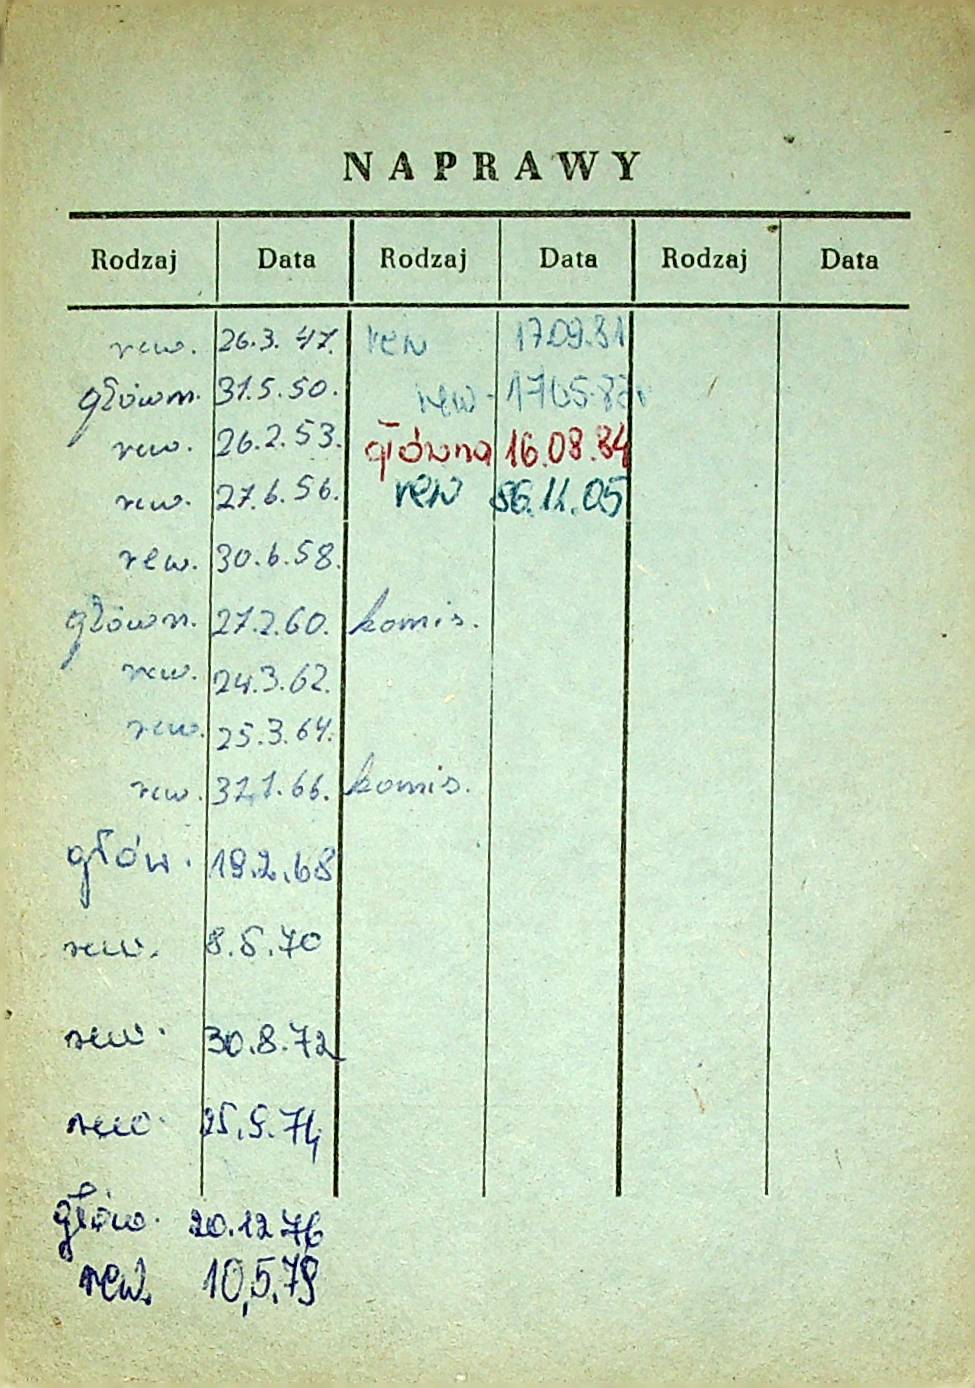 NAPRAWY
Rodzaj Data Rodzaj Data Rodzaj Data
rew. 26.3.47. rew 17.09.81
główn. 31.5.50. rew-
rew. 26.2.53. główna 16.08.84
rew. 27.6.56. rew 86.11.05
rew. 30.6.58.
główn. 27.2.60. komis.
rew. 24.3.62.
rew. 25.3.64.
rew. komis.
głów. 19.2.68
rew. 8.5.70
rew. 30.8.72
rew. 25.5.74
głów. 20.12.76
rew. 10,5.79